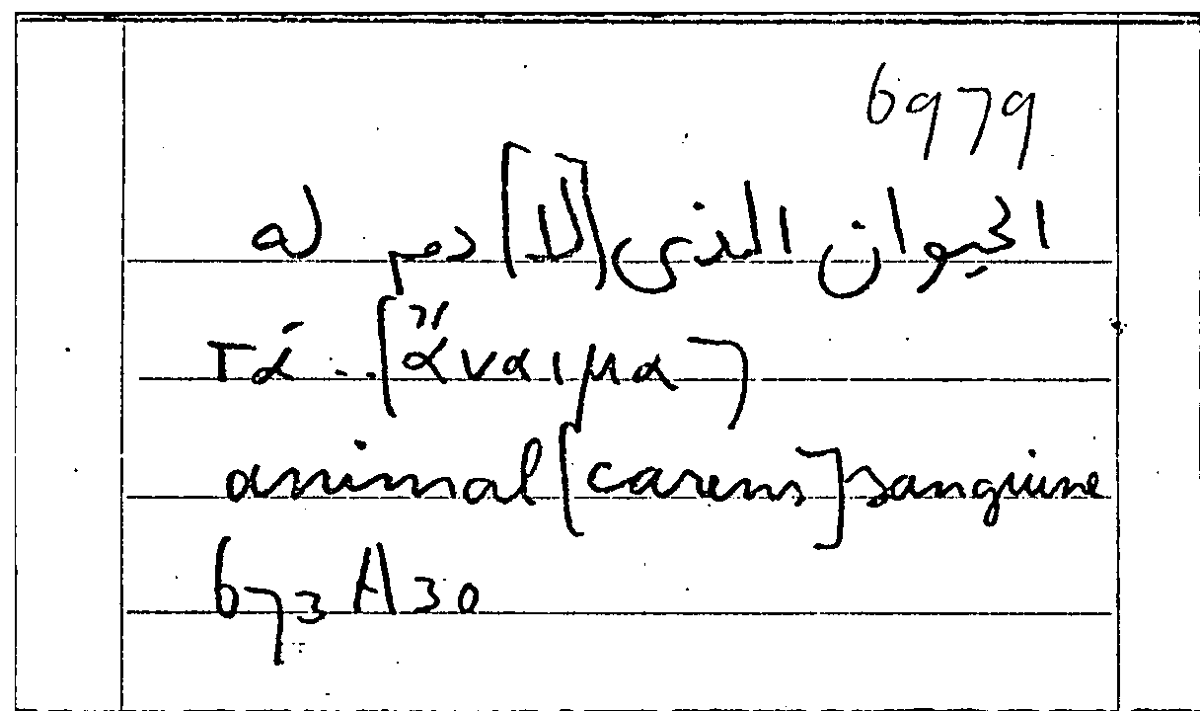 6979
الحيوان الذى [لا] دم له
τά ... [ἄναιμα]
animal [carens] sanguine
673 A 30